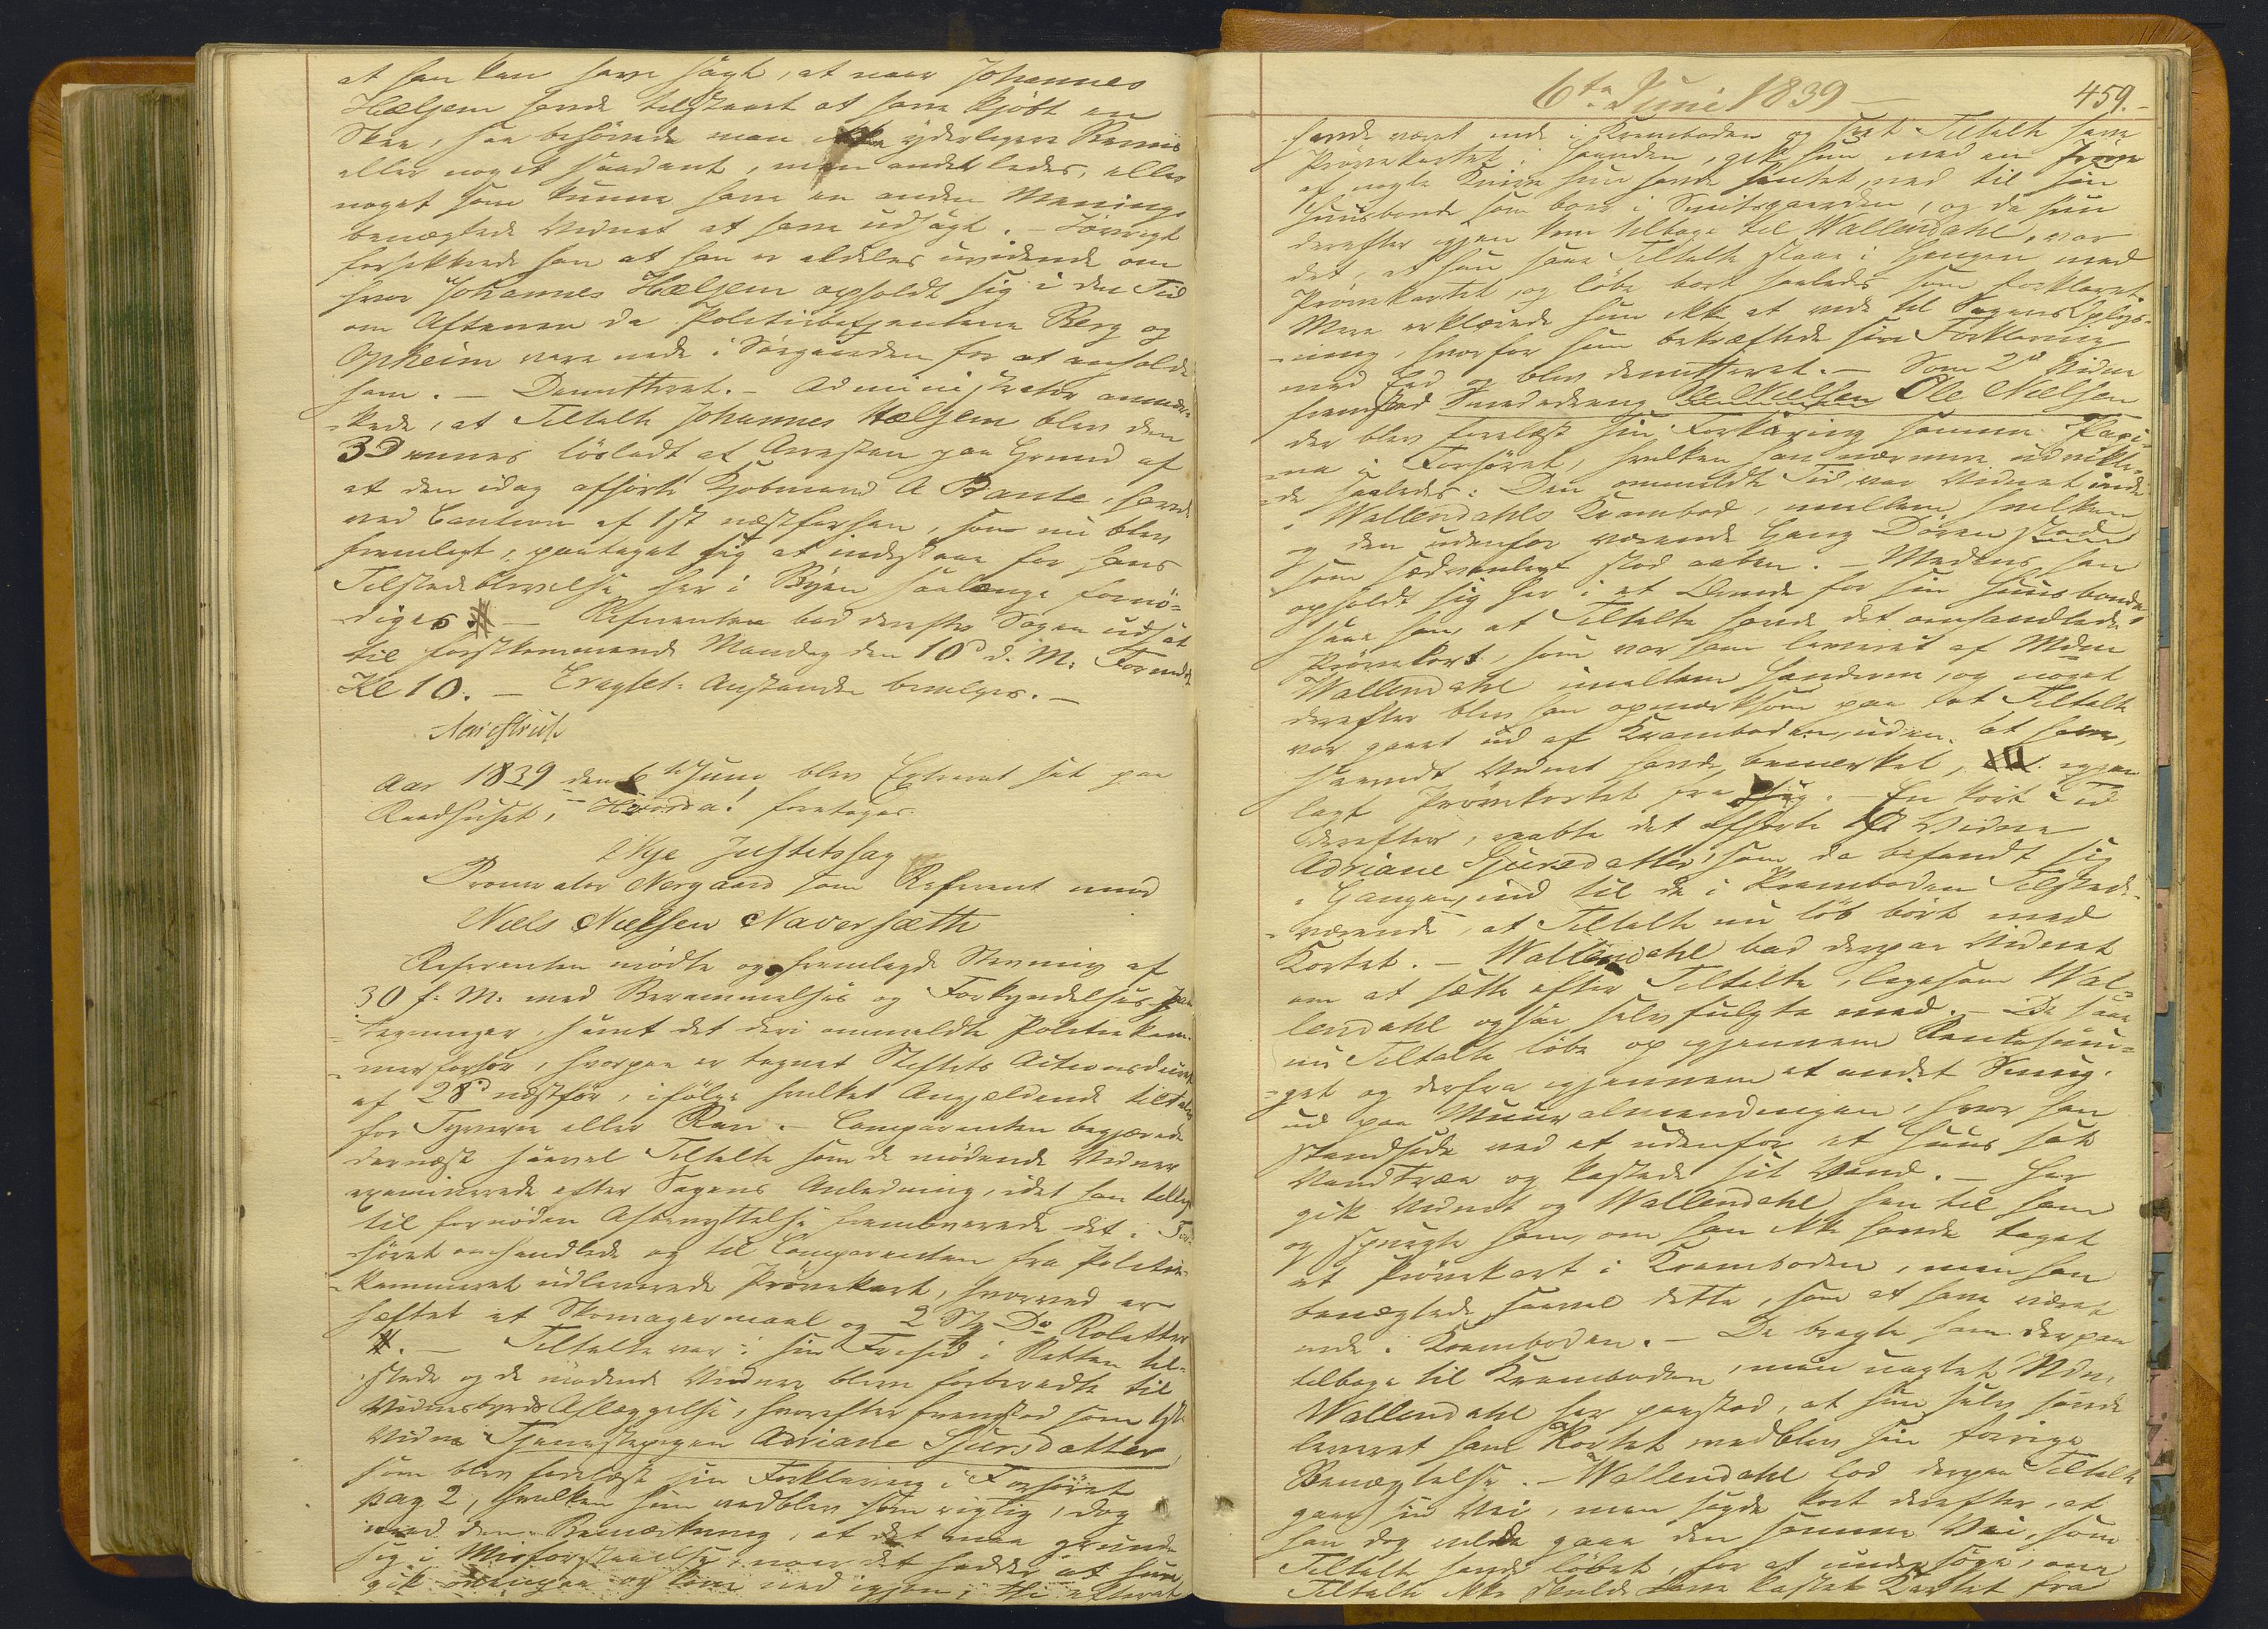 at han kan have sagt, at naar Johannes
Hælgem havde tilstaaet at have kjøbt en
Skee, saa behøvede man ikke yderligere Beviis
eller noget saadant, men anderledes, eller
noget som kunne have en anden Mening,
benægtede Vidnet at have udsagt. - Iøvrigt
forsikkrede han at han er aldeles uvidende om
hvor Johannes Hælgem opholdt sig i den Tid
om Aftenen da Politiebetjentene Berg og
Opheim vare nede i Sørgaarden for at anholde
ham. - Demitteret. - Administrator anmær-
kede, at Tiltalte Johannes Hælgem blev den
3D dennes løsladt af Arresten paa Grund af
at den idag afhørte Kjøbmand A Bante, havde
ved Caution af 1st næstforhen, som nu blev
fremlagt, paataget sig at indestaae for hans
Tilstedeblivelse her i Byen saalænge fornø-
diges. - Referenten bad derefter Sagen udsat
til førstkommende Mandag den 10d d. M. Formidd
Kl 10. - Eragtet: Anstanden bevilges. -
Aar 1839 den 6te Juni blev Extraret sat paa
Raadhuset, Hvorda! foretages
Nye Justitssag
Procurator Nergaard som Referent mod
Niels Nielsen Naversæth
Referenten mødte og fremlagde Stevning af
30 f: M: med Berammelses og Forkyndelses paa
tegninger, samt det deri ommeldte Politiekam-
merforhør, hvorpaa er tegnet Stiftets Actionsdecret
af 28d næstfør, ifølge hvilket Angjældende tiltales
for Tyverie eller Ran. - Comparenten begjærede
dernæst saavel Tiltalte som de mødende Vidner
examinerede efter Sagens Anledning, idet han tillige
til fornøden Afbenyttelse frembærede det i For-
høret omhandlede og til Comparenten fra Politie-
kammeret udleverede Prøvekort, hvorved er
hæftet et Skomagermaal og 2 Stk Do Roletter
. - Tiltalte var i sin Frihed i Retten til-
stede og de mødende Vidner bleve forberedte til
Vidnesbyrds Aflæggelse, hvorefter fremstod som 1ste
Vidne Tjenestepigen Adriane Sjursdatter,
som blev forelæst sin Forklaring i Forhøret
pag 2, hvilken hun vedblev som rigtig, dog
med den Bemærkning, at det maa grunde
sig i Misforstaaelse, naar det hedder at hun
gik ovenpaa og kom ned igjen; thi efterat
6te Juni 1839 - 459.
havde været inde i Kramboden og seet Tiltalte have
Prøvekortet i Haanden, gik hun med en Prøve
af nogle Knive hun havde hentet, ned til sin
Huusbonde som boer i Smitsgaarden, og da hun
derefter igjen kom tilbage til Wallendahl, var
det, at hun saae Tiltalte staae i Gangen med
Prøvekortet, og løbe bort saaledes som forklaret.
Mere erklærede hun ikke at vide til Sagens Oplys-
ning, hvorfor hun bekræftede sin Forklaring
med Eed og blev demitteret. - Som 2d Vidne
fremstod Smededreng Ole Nielsen
der blev forelæst sin Forklaring samme Pagi-
na i Forhøret, hvilken han nærmere udvikle-
de saaledes: Den ommeldte Tid var Vidnet inde
i Wallendahls Krambod, mellem hvilken
og den udenfor værende Gang Døren stod
som sædvanligt stod aaben. - Medens han
opholdt sig her i et Ærinde for sin Huusbonde,
saae han, at Tiltalte havde det omhandlede
Prøvekort, som var ham leveret af Mdme
Wallendahl imellem Hænderne, og noget
derefter blev han opmærksom paa at Tiltalte
var gaaet ud af Kramboden, uden at han,
saavidt Vidnet havde bemærket, igjen
lagt Prøvekortet fra sig. - En kort Tid
derefter, raabte det afhørte 1ste Vidne
Adriane Sjursdatter, som da befandt sig
i Gangen, ind til de i Kramboden Tilstede-
værende, at Tiltalte nu løb bort med
Kortet. - Wallendahl bad derpaa Vidnet
om at sætte efter Tiltalte, ligesom Wal-
lendahl ogsaa selv fulgte med. - De saae
nu Tiltalte løbe op igjennem Rentesmu-
get og derfra igjennem et andet Smug,
ud paa Muuralmendingen, hvor han
standsede ved et udenfor et Huus sat
Vandtræe og kastede sit Vand. - Her
gik Vidnet og Wallendahl hen til ham
og spurgte ham, om han ikke havde taget
et Prøvekort i Kramboden, men han
benægtede saavel dette, som at have været
inde i Kramboden. - De bragte ham derpaa
tilbage til Kramboden, men uagtet Mdme
Wallendahl her paastod, at hun selv havde
leveret ham Kortet vedblev sin forrige
Benægtelse. - Wallendahl lod derpaa Tiltalte
gaae sin Vei, men sagde kort derefter, at
han dog vilde gaae den samme Vei, som
Tiltalte havde løbet, for at undersøge, om
Tiltalte ikke skulde have kastet Kortet fra